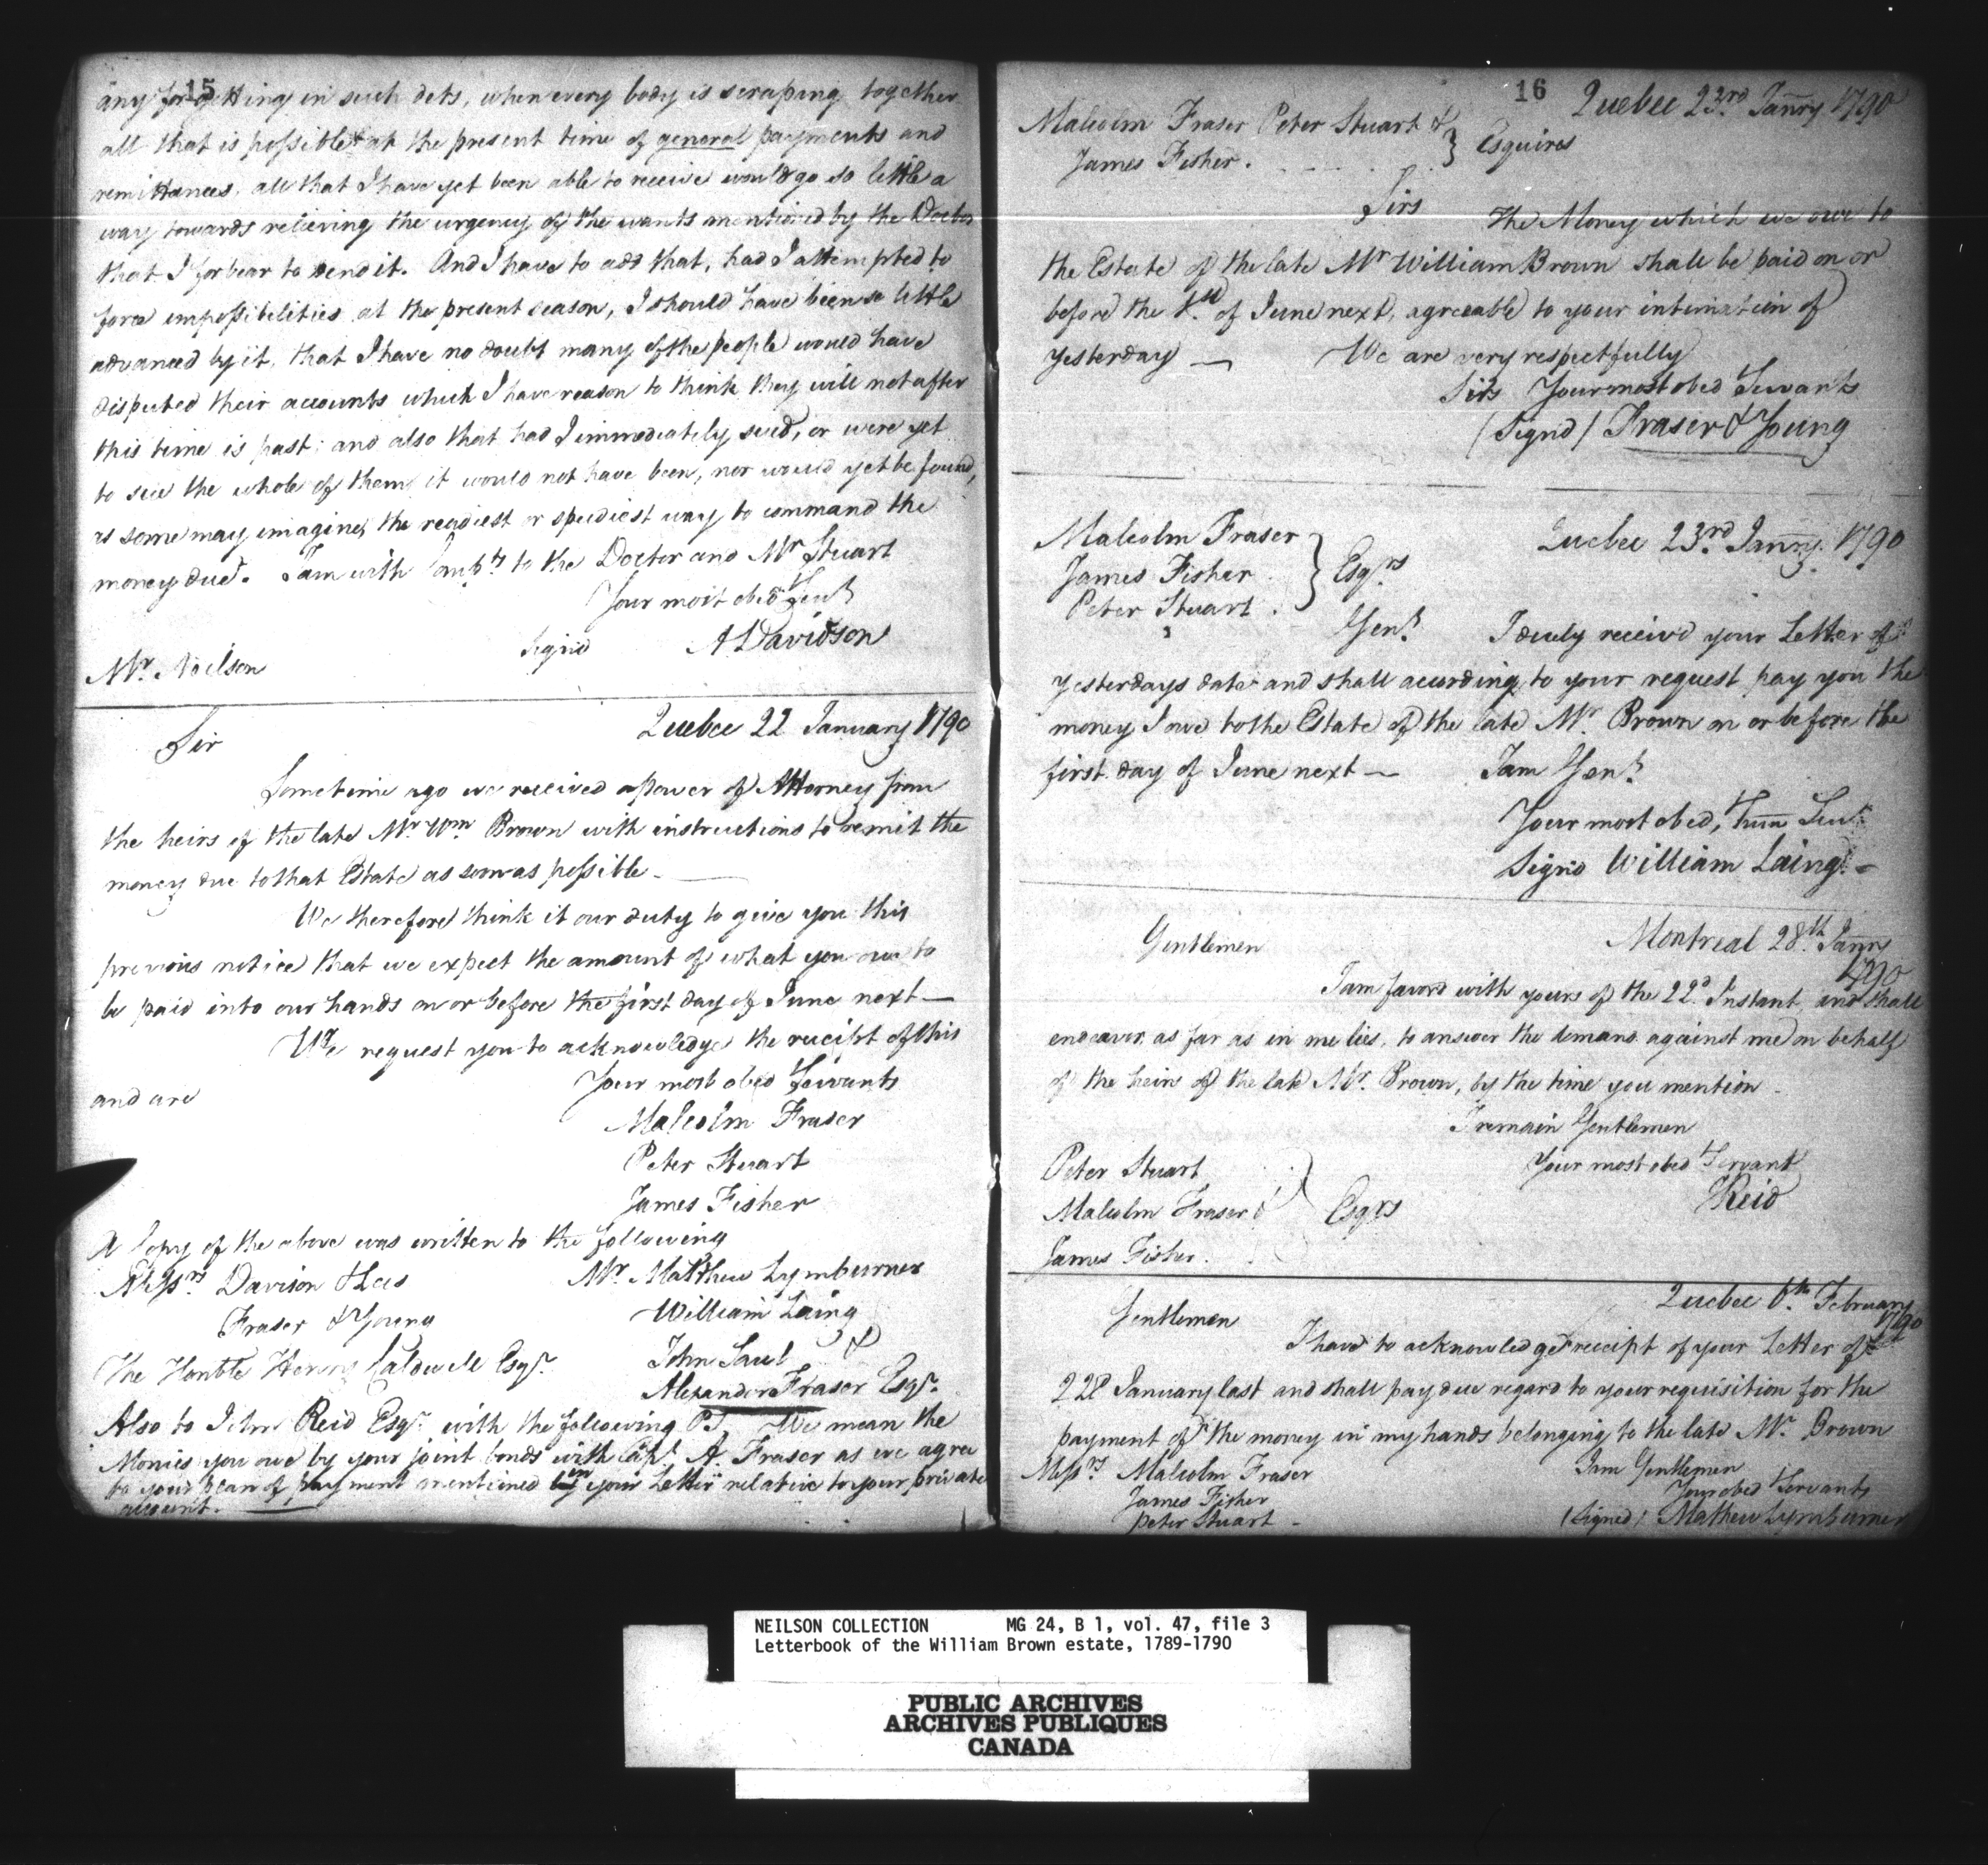 15
any for getting in such dets, when every body is scraping together
all that is possible at the present time of general payments and
remittances, all that I have yet been able to receive would go so little a
way towards relieving the urgency of the wants mentioned by the Doctor
that I forbear to send it. And I have to add that, had I attempted to
force impossibilities at the present season, I should have been so little
advanced by it, that I have no doubt many of the people would have
disputed their accounts which I have reason to think they will not after
this time is past; and also that had I immediately sued, or were yet
to sue the whole of them it would not have been, nor would yet be found,
as some may imagine, the readiest or speediest way to command the
money due. I am with Compts to the Doctor and Mr Stuart
Your most obed Servt
Signd A Davidson
Mr. Neilson
Quebec 22 January 1790
Sir
Sometime ago we received a power of Attorney from
the heirs of the late Mr Wm Brown with instructions to remit the
money due to that Estate as soon as possible -
We therefore think it our duty to give you this
previous notice that we expect the amount of what you owe to
be paid into our hands on or before the first day of June next —
We request you to acknowledge the receipt of this
and are
Your most obed Servants
Malcolm Fraser
Peter Stuart
James Fisher
A Copy of the above was written to the following
Messrs Davison & Lees Mr Matthew Lymburner
Fraser & Young William Laing
The Honble Henry Caldwell Esqr. John Saul &
Alexander Fraser Esqr.
Also to John Reid Esqr. with the following PS. We mean the
Monies you owe by your joint bonds with Capt A. Fraser as we agree
to your plan of payment mentioned in your Letter relative to your private
account.
16
Quebec 23rd Janry 1790
Malcolm Fraser Peter Stuart &
James Fisher. } Esquires
Sirs
The Money which we owe to
the Estate of the late Mr William Brown shall be paid on or
before the 1st of June next, agreeable to your intimation of
yesterday — We are very respectfully
Sirs Your most obed Servants
(Signd) Fraser & Young
Quebec 23rd Janry. 1790
Malcolm Fraser
James Fisher } Esqrs
Peter Stuart.
Gent
I duely receivd your Letter of
yesterdays date and shall according to your request pay you the
money I owe to the Estate of the late Mr. Brown on or before the
first day of June next — I am Gent
Your most obed, Hum Servt
Signd William Laing. -
Montreal 28th Janry
1790
Gentlemen
I am favord with yours of the 22d Instant, and shall
endeavor, as far as in me lies, to answer the demand against me on behalf
of the heirs of the late Mr. Brown, by the time you mention -
I remain Gentlemen
Your most obed Servant
JReid
Peter Stuart
Malcolm Fraser & } Esqrs
James Fisher.
Quebec 6th February
1790
Gentlemen
I have to acknowledge receipt of your Letter of
22d January last and shall pay due regard to your requisition for the
payment of the money in my hands belonging to the late Mr. Brown
I am Gentlemen
Messrs Malcolm Fraser
James Fisher
Peter Stuart -
Your obed Servant
(Signed) Mathew Lymburner
NEILSON COLLECTION MG 24, B 1, vol. 47, file 3
Letterbook of the William Brown estate, 1789-1790
PUBLIC ARCHIVES
ARCHIVES PUBLIQUES
CANADA